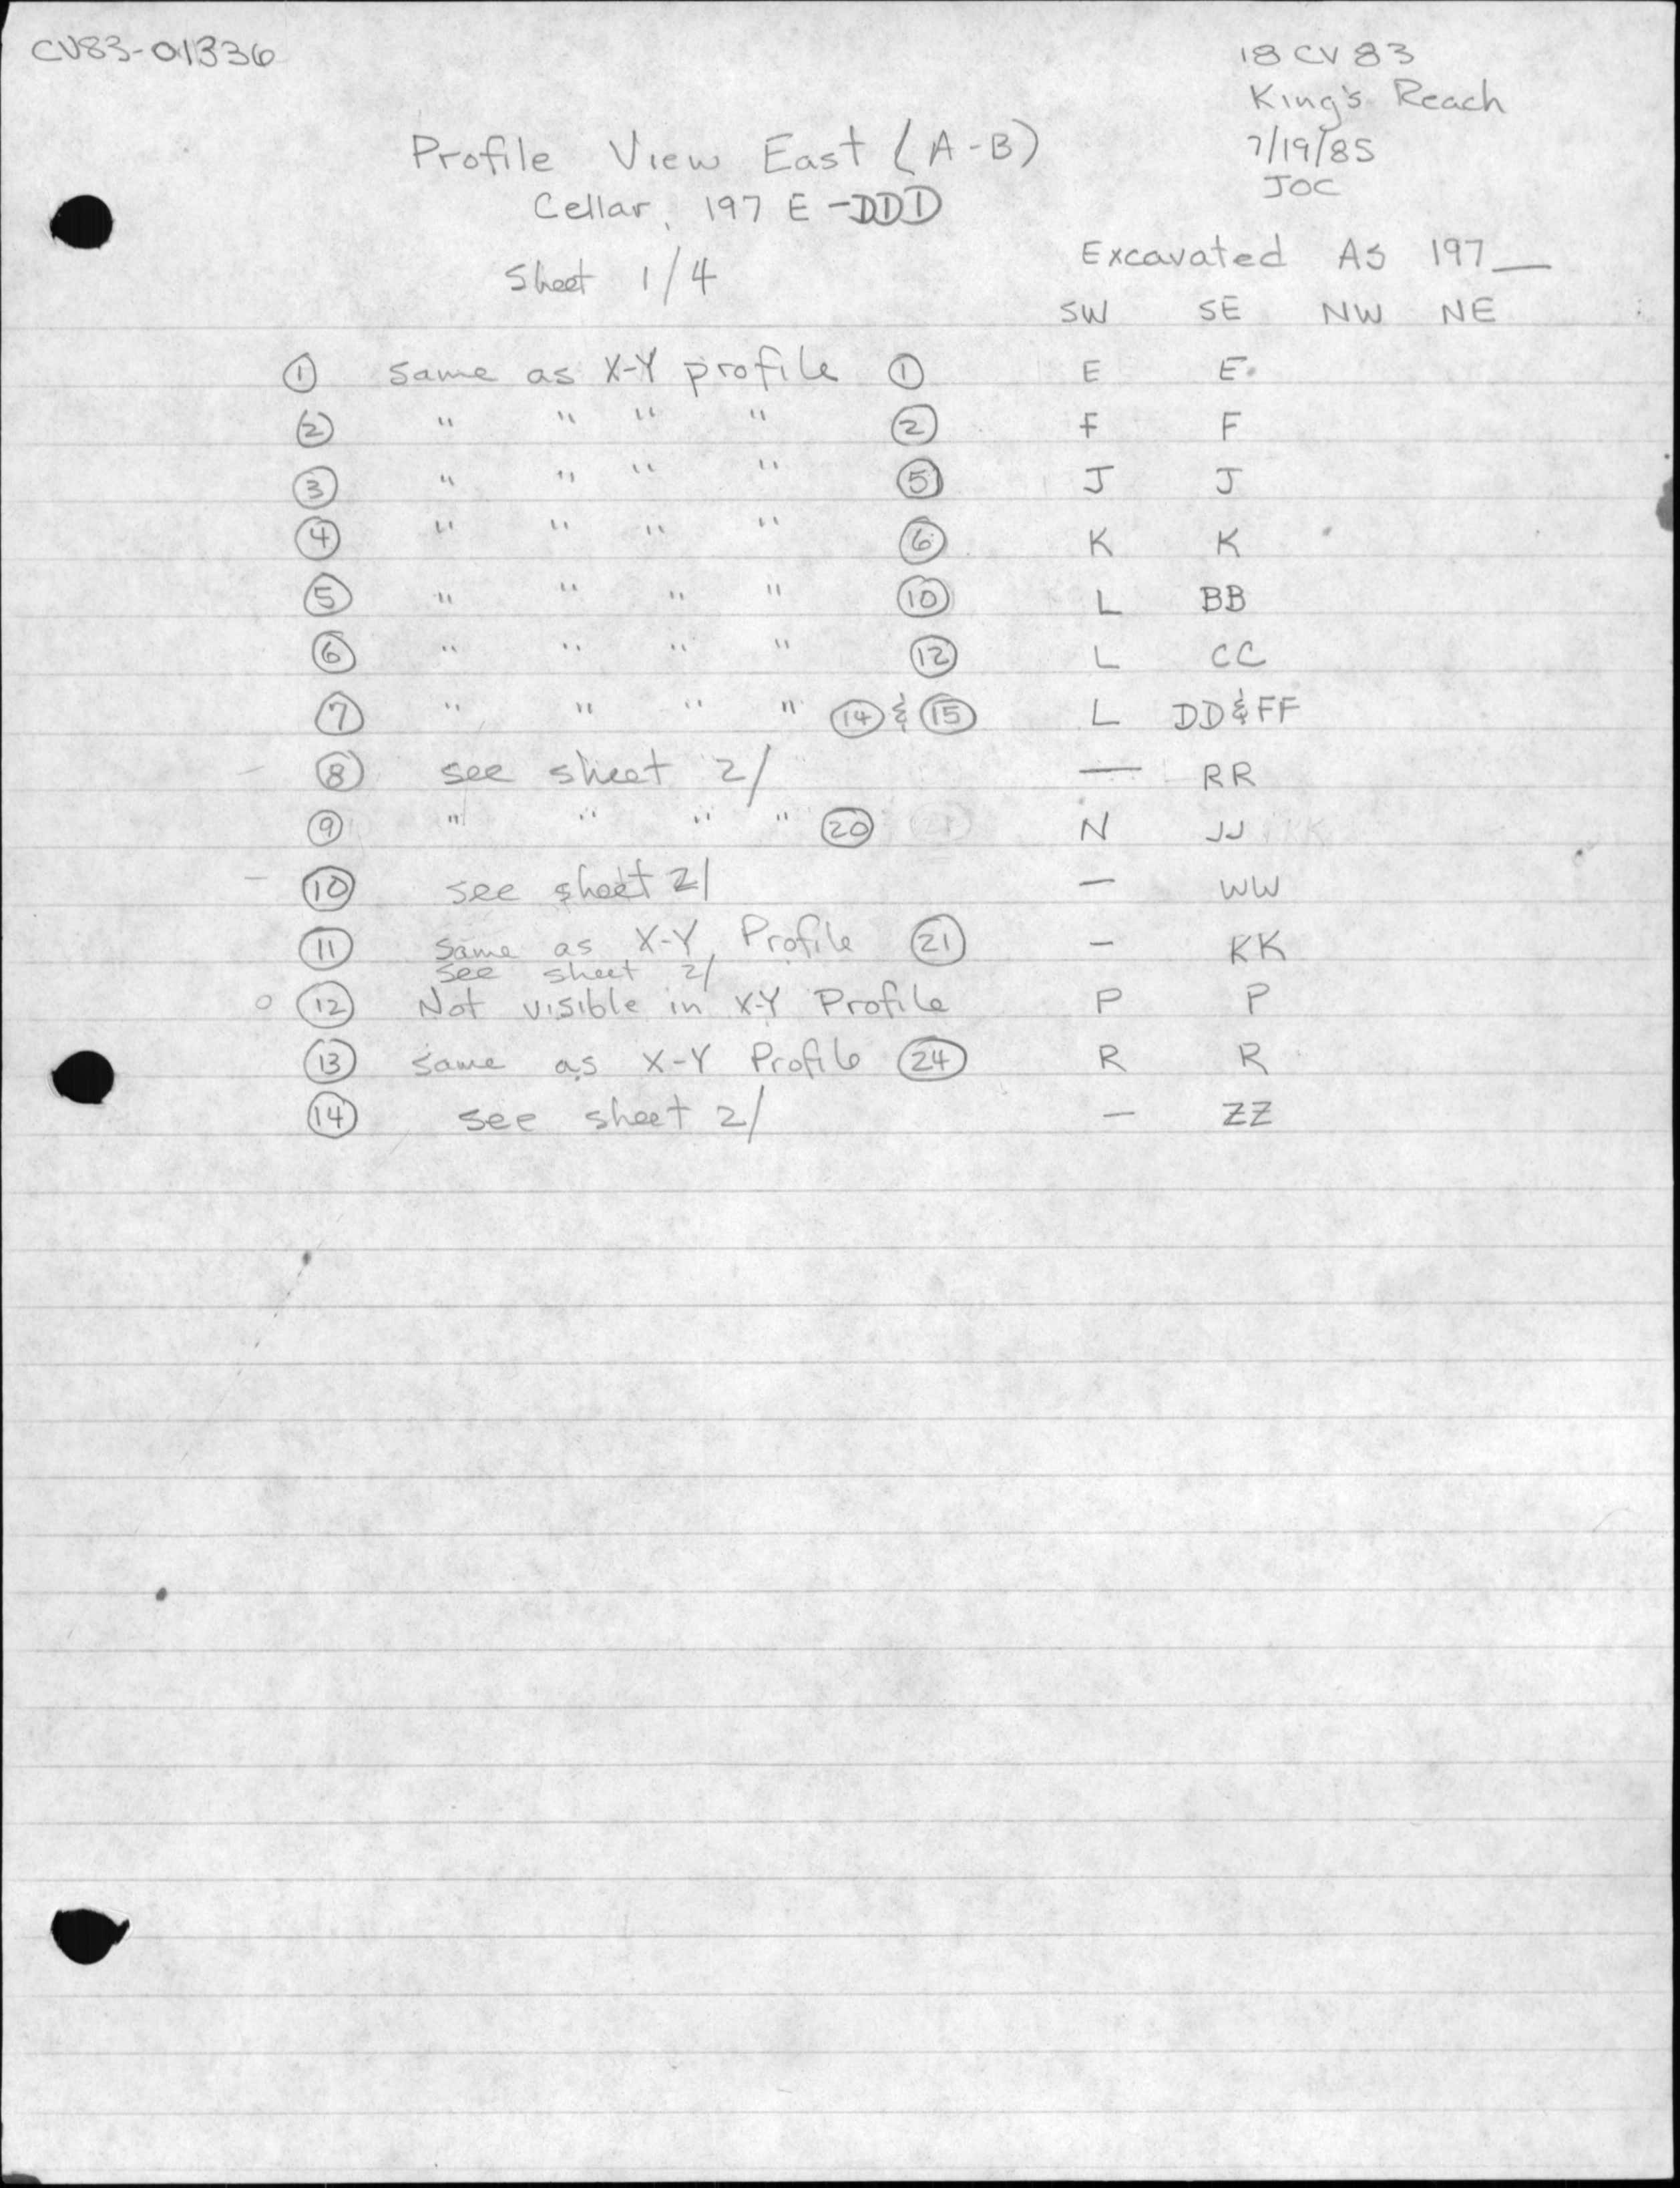 CV83-01336
18 CV 83
King's Reach
7/19/85
JOC
Profile View East (A-B)
Cellar, 197 E-DDD
Sheet 1/4
Excavated As 197__
SW SE NW NE
① same as X-Y profile ① E E
② " " " " ② F F
③ " " " " ⑤ J J
④ " " " " ⑥ K K
⑤ " " " " ⑩ L BB
⑥ " " " " ⑫ L CC
⑦ " " " " ⑭ & ⑮ L DD & FF
⑧ see sheet 2/ — RR
⑨ " " " " ⑳ N JJ
⑩ see sheet 2/ — WW
⑪ same as X-Y Profile ㉑ — KK
see sheet 2/
⑫ Not visible in X-Y Profile P P
⑬ same as X-Y Profile ㉔ R R
⑭ see sheet 2/ — ZZ